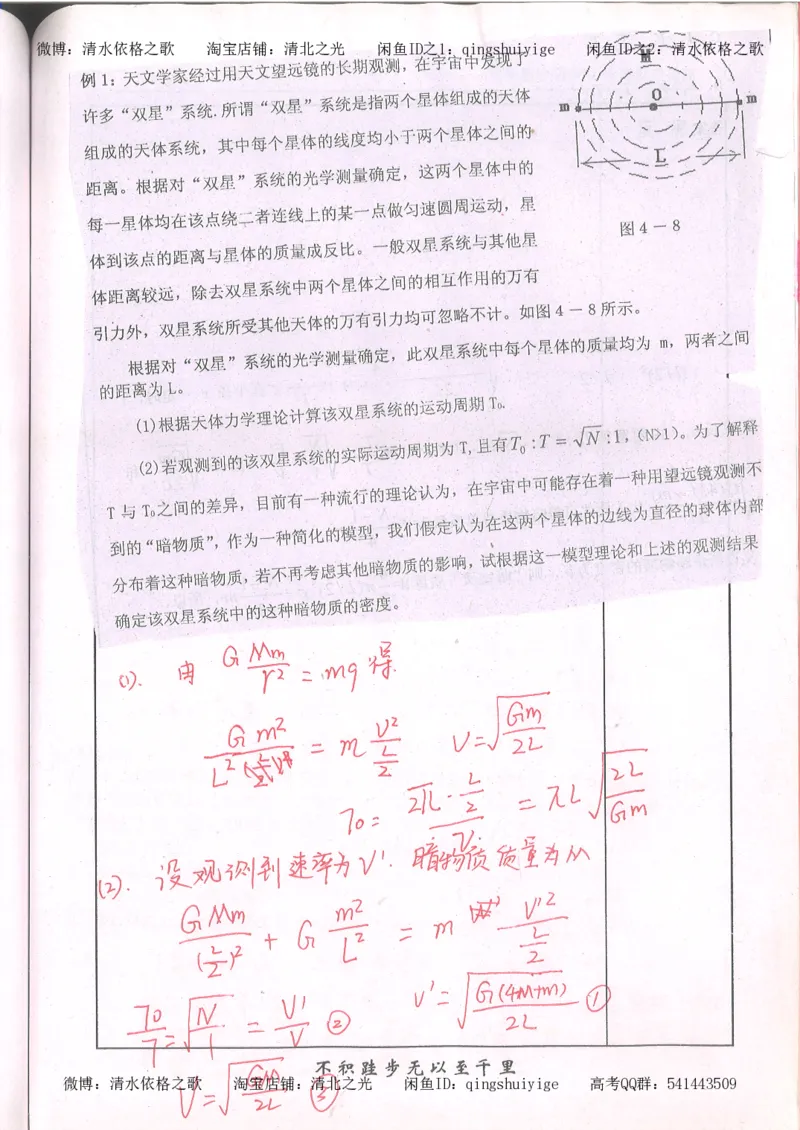 微博：清水依格之歌 淘宝店铺：清北之光 闲鱼ID之1：qingshuiyige 闲鱼ID之2：清水依格之歌
例1：天文学家经过用天文望远镜的长期观测，在宇宙中发现了
许多“双星”系统.所谓“双星”系统是指两个星体组成的天体
组成的天体系统，其中每个星体的线度均小于两个星体之间的
距离。根据对“双星”系统的光学测量确定，这两个星体中的
每一星体均在该点绕二者连线上的某一点做匀速圆周运动，星
体到该点的距离与星体的质量成反比。一般双星系统与其他星
体距离较远，除去双星系统中两个星体之间的相互作用的万有
引力外，双星系统所受其他天体的万有引力均可忽略不计。如图4－8所示。
M
m O m
L
图4－8
根据对“双星”系统的光学测量确定，此双星系统中每个星体的质量均为 m，两者之间
的距离为L。
(1)根据天体力学理论计算该双星系统的运动周期T₀.
(2)若观测到的该双星系统的实际运动周期为T,且有T₀:T=√N:1，(N>1)。为了解释
T与T₀之间的差异，目前有一种流行的理论认为，在宇宙中可能存在着一种用望远镜观测不
到的“暗物质”，作为一种简化的模型，我们假定认为在这两个星体的边线为直径的球体内部
分布着这种暗物质，若不再考虑其他暗物质的影响，试根据这一模型理论和上述的观测结果
确定该双星系统中的这种暗物质的密度。
(1). 由 G Mm/r² = mg 得
G m²/L² = m V²/(L/2) V=√(Gm/2L)
T0 = 2π·L/2 / V = πL√(2L/Gm)
(2). 设观测到速率为V'. 暗物质质量为M
GMm/(L/2)² + G m²/L² = m V'²/(L/2)
V'=√(G(4M+m)/2L) ①
T0/T=√N/1 = V'/V ②
V=√(Gm/2L) ③
不积跬步无以至千里
微博：清水依格之歌 淘宝店铺：清北之光 闲鱼ID：qingshuiyige 高考QQ群：541443509